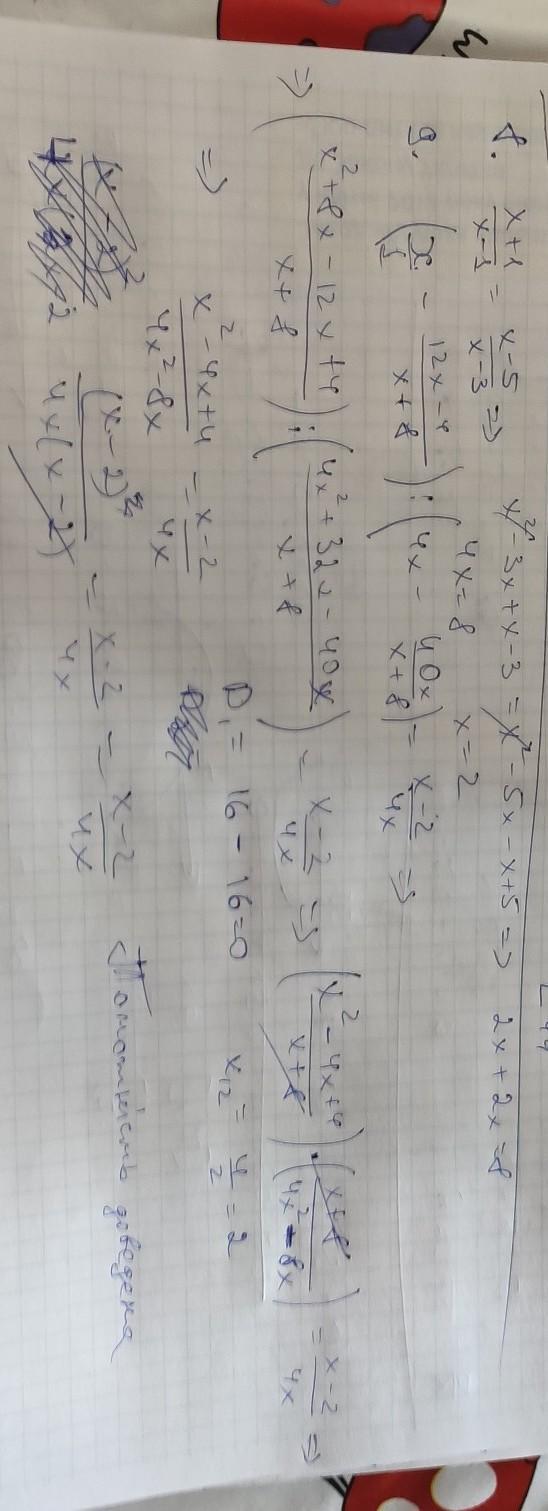 8. x+1/x-1 = x-5/x-3 => x²-3x+x-3 = x²-5x-x+5 => 2x+2x=8
4x=8
x=2
9. (x/1 - 12x-4/x+8) : (4x - 40x/x+8) = x-2/4x =>
=> (x²+8x-12x+4/x+8) : (4x²+32x-40x/x+8) = x-2/4x => (x²-4x+4/x+8) · (x+8/4x²-8x) = x-2/4x =>
=> x²-4x+4/4x²-8x = x-2/4x
D₁ = 16-16=0 x₁₂ = 4/2 = 2
(x-2)²/4x(x-2) = x-2/4x = x-2/4x Тотожність доведена